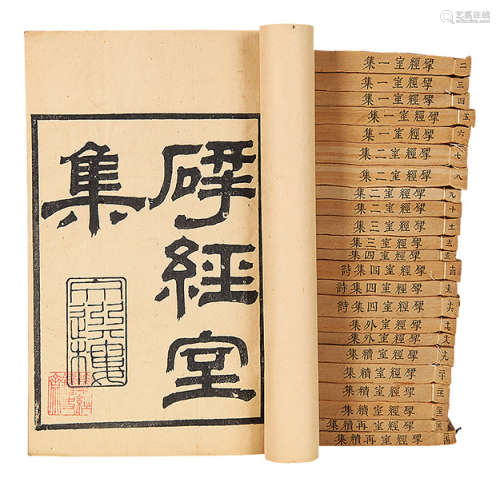 揅經室
集
文選樓
二 揅經室一集
三 揅經室一集
四 揅經室一集
五 揅經室一集
六 揅經室一集
七 揅經室二集
八 揅經室二集
九 揅經室二集
十 揅經室二集
揅經室三集
揅經室三集
揅經室四集
揅經室四集詩
揅經室四集詩
揅經室四集詩
揅經室外集
揅經室外集
揅經室續集
揅經室續集
揅經室續集
揅經室續集
揅經室再續集
揅經室再續集
艺狐在线